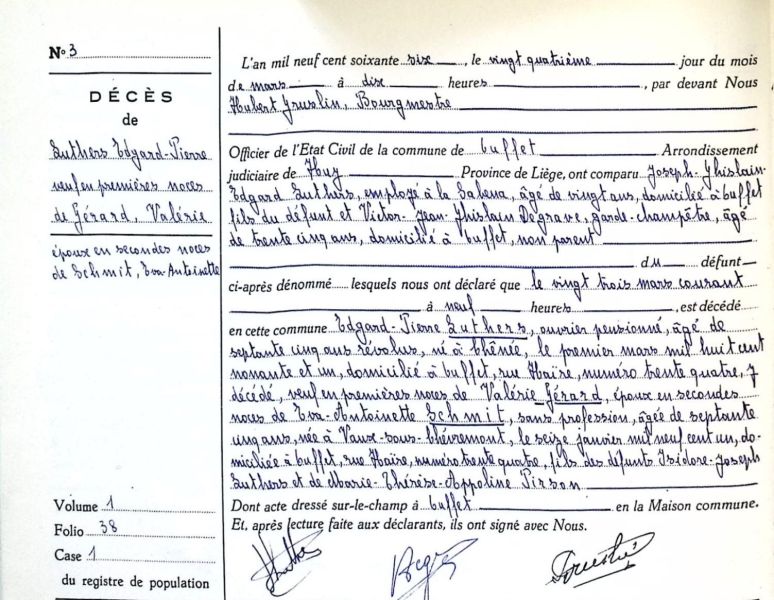 N° 3
DÉCÈS
de
Luthers Edgard-Pierre
veuf en premières noces
de Gérard, Valérie
époux en secondes noces
de Schmit, Eva-Antoinette
Volume 1
Folio 38
Case 1
du registre de population
L'an mil neuf cent soixante six, le vingt quatrième jour du mois
de mars à dix heures, par devant Nous
Hubert Gruslin, Bourgmestre
Officier de l'Etat Civil de la commune de Cuffet Arrondissement
judiciaire de Huy Province de Liège, ont comparu Joseph-Ghislain-
Edgard Luthers, employé à la Sabena, âgé de vingt ans, domicilié à Cuffet
fils du défunt et Victor-Jean-Ghislain Degrave, garde-champêtre, âgé
de trente cinq ans, domicilié à Cuffet, non parent
du défunt
ci-après dénommé lesquels nous ont déclaré que le vingt trois mars courant
à neuf heures, est décédé
en cette commune Edgard-Pierre Luthers, ouvrier pensionné, âgé de
septante cinq ans révolus, né à Chênée, le premier mars mil huit cent
nonante et un, domicilié à Cuffet, rue Haire, numéro trente quatre, y
décédé, veuf en premières noces de Valérie Gérard, époux en secondes
noces de Eva-Antoinette Schmit, sans profession, âgée de septante
cinq ans, née à Vaux-sous-Chèvremont, le seize janvier mil neuf cent un, do-
miciliée à Cuffet, rue Haire, numéro trente quatre, fils des défunts Isidore-Joseph
Luthers et de Marie-Thérèse-Appoline Pirson
Dont acte dressé sur-le-champ à Cuffet en la Maison commune.
Et, après lecture faite aux déclarants, ils ont signé avec Nous.